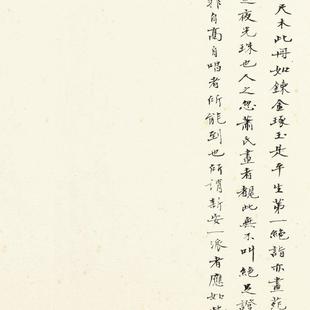 尺木此冊如鍊金琢玉是平生第一絕詣亦畫苑
之夜光珠也人之忽蕭氏畫者覩此無不叫絕足證
非自高自唱者所能到也所謂新安一派者應如